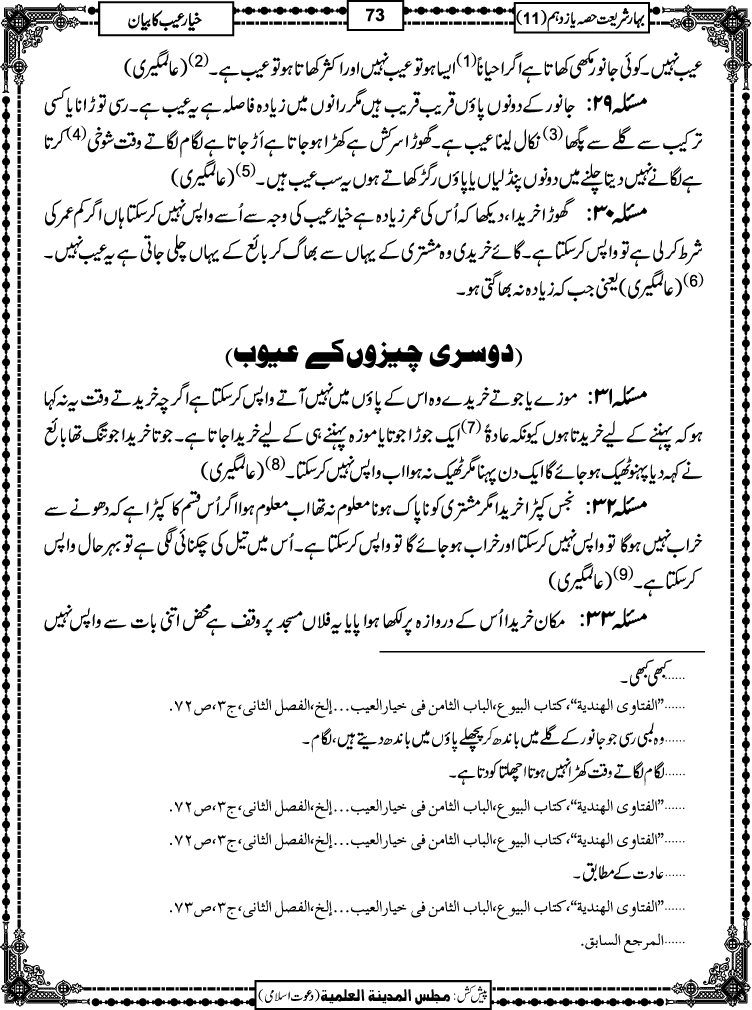 بہار شریعت حصہ یازدہم (11)
73
خیار عیب کا بیان
عیب نہیں۔ کوئی جانور مکھی کھاتا ہے اگر احیاناً(1) ایسا ہو تو عیب نہیں اور اکثر کھاتا ہو تو عیب ہے۔(2) (عالمگیری)
مسئلہ ۲۹: جانور کے دونوں پاؤں قریب قریب ہیں مگر رانوں میں زیادہ فاصلہ ہے یہ عیب ہے۔ رسی توڑانا یا کسی
ترکیب سے گلے سے پگھا(3) نکال لینا عیب ہے۔ گھوڑا سرکش ہے کھڑا ہو جاتا ہے اَڑ جاتا ہے لگام لگاتے وقت شوخی(4) کرتا
ہے لگانے نہیں دیتا چلنے میں دونوں پنڈلیاں یا پاؤں رگڑ کھاتے ہوں یہ سب عیب ہیں۔(5) (عالمگیری)
مسئلہ ۳۰: گھوڑا خریدا، دیکھا کہ اُس کی عمر زیادہ ہے خیار عیب کی وجہ سے اُسے واپس نہیں کر سکتا ہاں اگر کم عمر کی
شرط کر لی ہے تو واپس کر سکتا ہے۔ گائے خریدی وہ مشتری کے یہاں سے بھاگ کر بائع کے یہاں چلی جاتی ہے یہ عیب نہیں۔
(6) (عالمگیری) یعنی جب کہ زیادہ نہ بھاگتی ہو۔
(دوسری چیزوں کے عیوب)
مسئلہ ۳۱: موزے یا جوتے خریدے وہ اس کے پاؤں میں نہیں آتے واپس کر سکتا ہے اگرچہ خریدتے وقت یہ نہ کہا
ہو کہ پہننے کے لیے خریدتا ہوں کیونکہ عادۃً(7) ایک جوڑا جوتا یا موزہ پہننے ہی کے لیے خریدا جاتا ہے۔ جوتا خریدا جو تنگ تھا بائع
نے کہہ دیا پہنو ٹھیک ہو جائے گا ایک دن پہنا مگر ٹھیک نہ ہوا اب واپس نہیں کر سکتا۔(8) (عالمگیری)
مسئلہ ۳۲: نجس کپڑا خریدا مگر مشتری کو ناپاک ہونا معلوم نہ تھا اب معلوم ہوا اگر اُس قسم کا کپڑا ہے کہ دھونے سے
خراب نہیں ہوگا تو واپس نہیں کر سکتا اور خراب ہو جائے گا تو واپس کر سکتا ہے۔ اُس میں تیل کی چکنائی لگی ہے تو بہر حال واپس
کر سکتا ہے۔(9) (عالمگیری)
مسئلہ ۳۳: مکان خریدا اُس کے دروازہ پر لکھا ہوا پایا یہ فلاں مسجد پر وقف ہے محض اتنی بات سے واپس نہیں
......کبھی کبھی۔
......”الفتاوی الھندیة“،کتاب البیوع،الباب الثامن فی خیارالعیب...إلخ،الفصل الثانی،ج۳،ص۷۲.
......وہ لمبی رسی جو جانور کے گلے میں باندھ کر پچھلے پاؤں میں باندھ دیتے ہیں، لگام۔
......لگام لگاتے وقت کھڑا نہیں ہوتا اچھلتا کودتا ہے۔
......”الفتاوی الھندیة“،کتاب البیوع،الباب الثامن فی خیارالعیب...إلخ،الفصل الثانی،ج۳،ص۷۲.
......”الفتاوی الھندیة“،کتاب البیوع،الباب الثامن فی خیارالعیب...إلخ،الفصل الثانی،ج۳،ص۷۲.
......عادت کے مطابق۔
......”الفتاوی الھندیة“،کتاب البیوع،الباب الثامن فی خیارالعیب...إلخ،الفصل الثانی،ج۳،ص۷۳.
......المرجع السابق.
پیش کش: مجلس المدینة العلمیة (دعوت اسلامی)